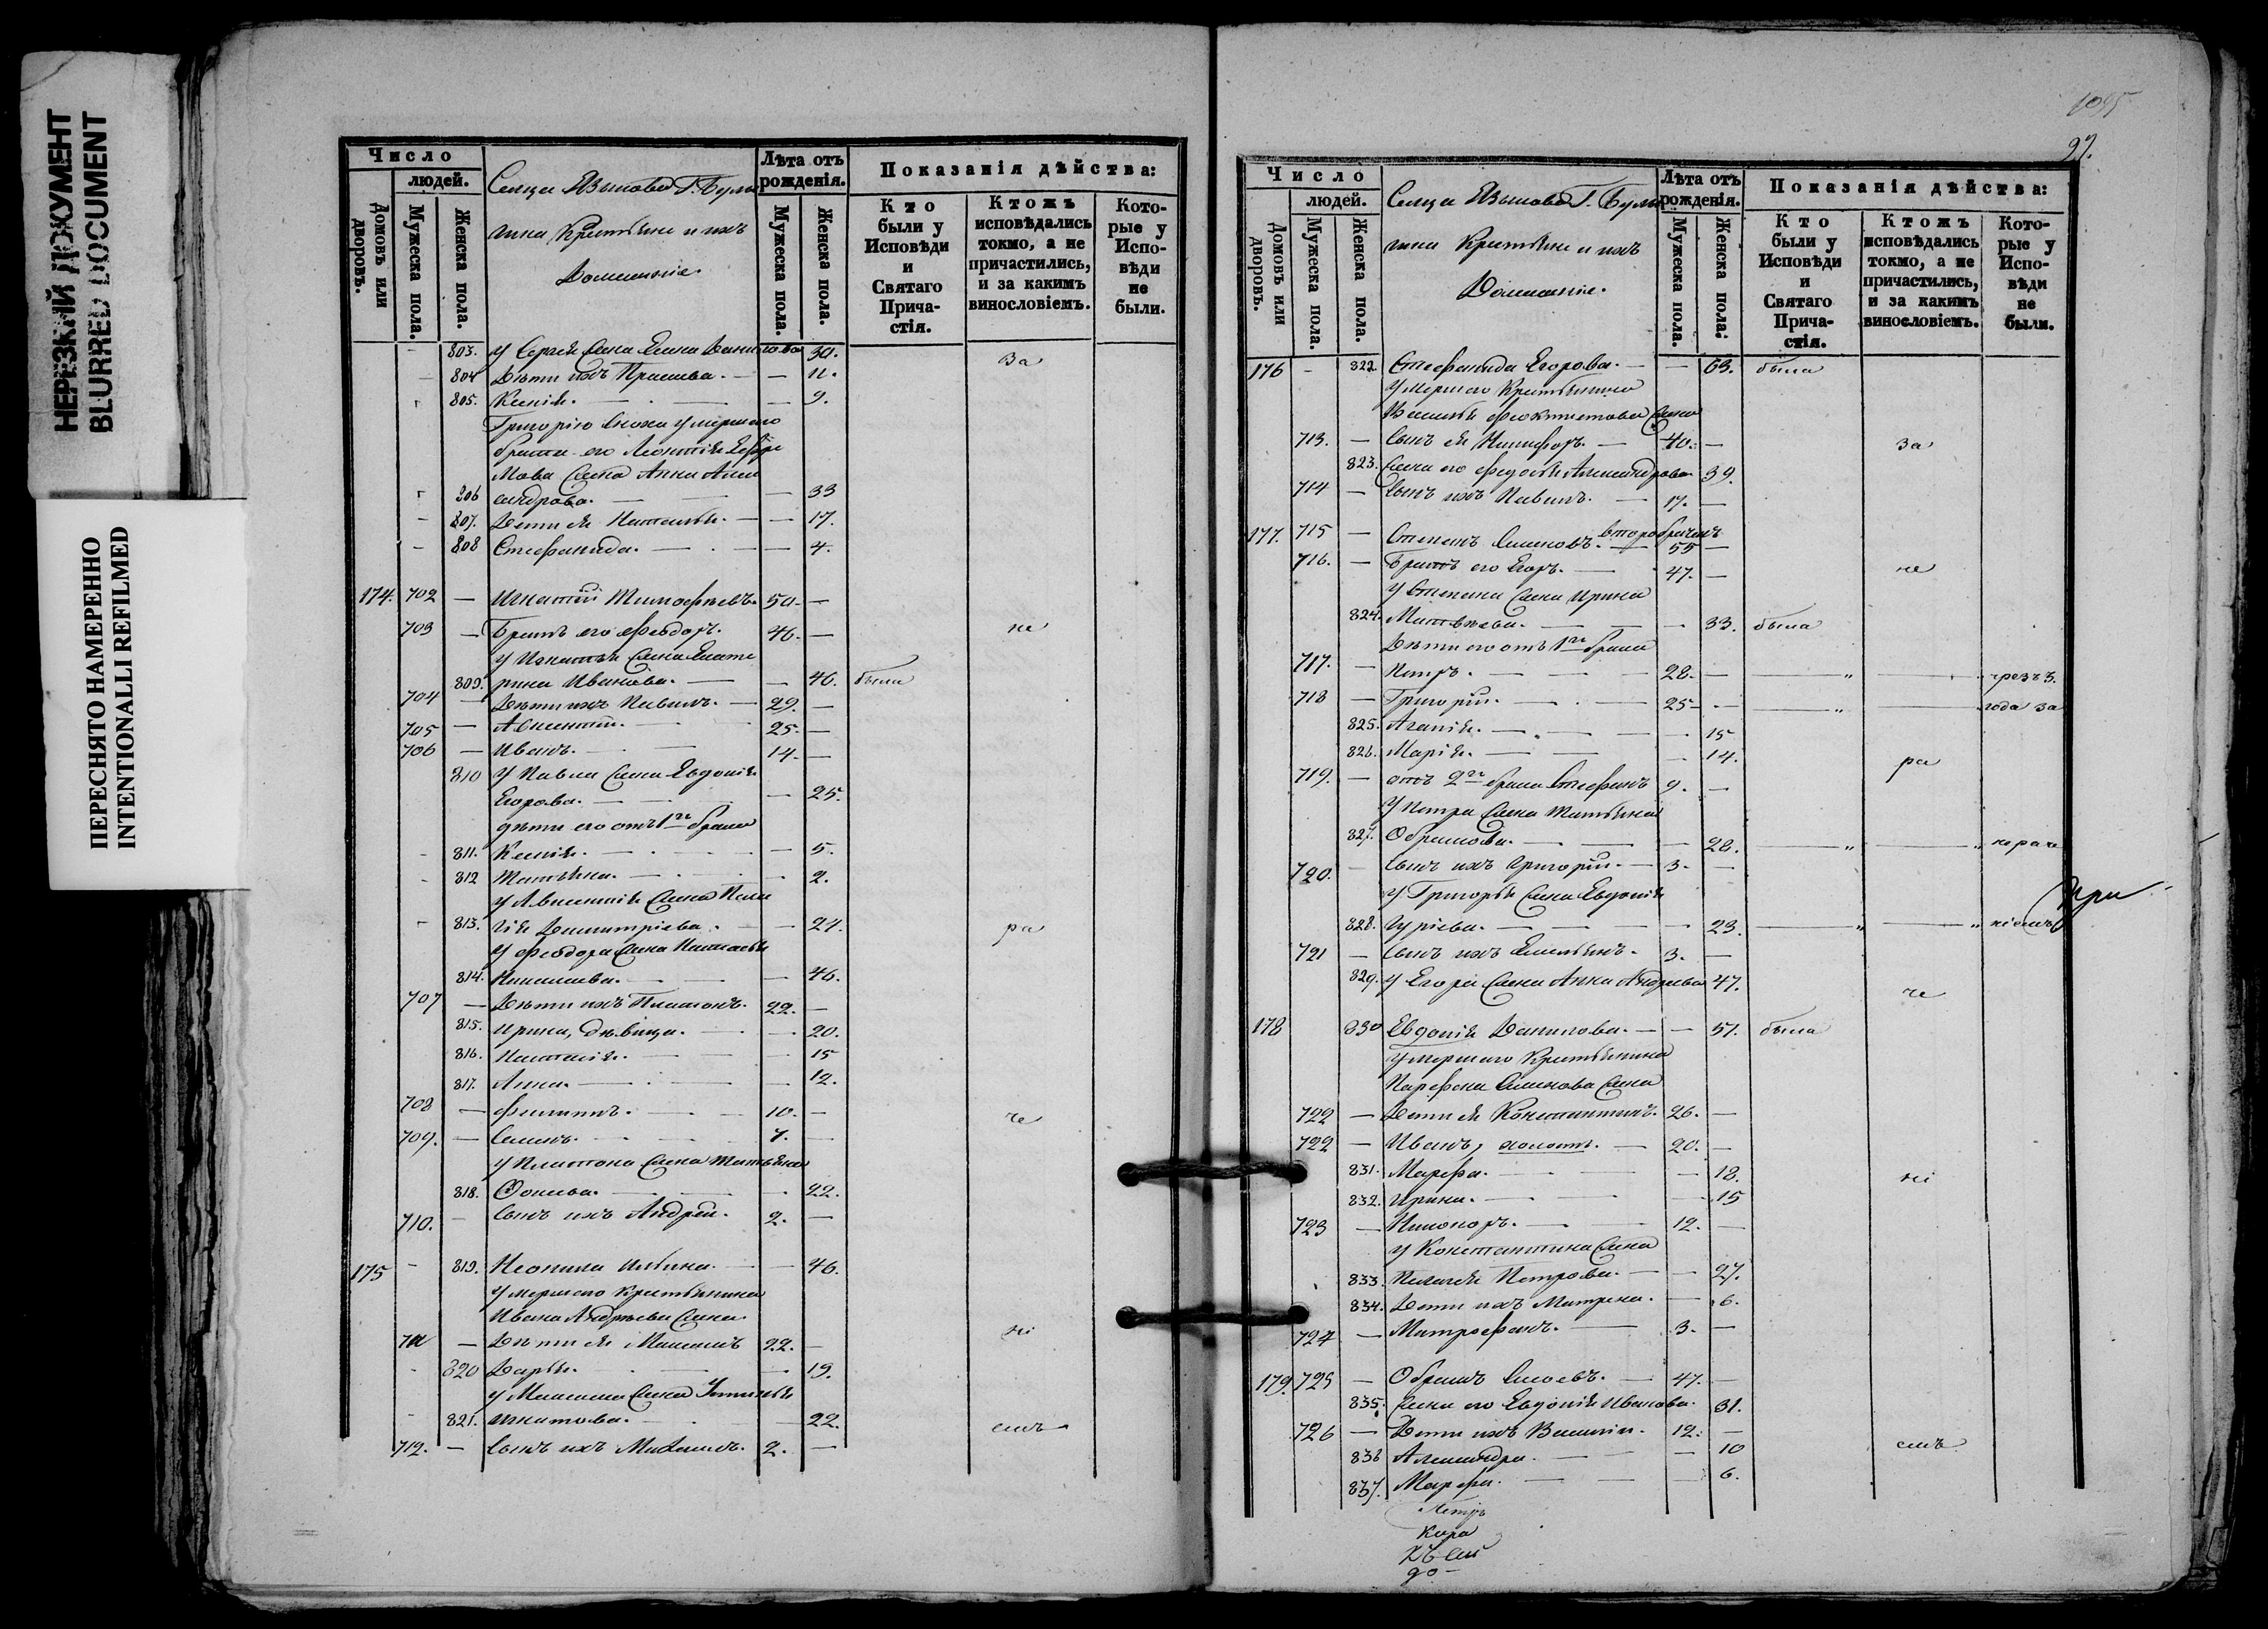 НЕРЕЗКИЙ ДОКУМЕНТ
BLURRED DOCUMENT
ПЕРЕСНЯТО НАМЕРЕННО
INTENTIONALLI REFILMED
Число
людей.
Домовъ или дворовъ.
Мужеска пола.
Женска пола.
Сельца Г.
Крестьяне и ихъ
Домашніе.
Лѣта отъ рожденія.
Мужеска пола.
Женска пола.
Показанія дѣйства:
Кто были у Исповѣди и Святаго Прича- стія.
Ктожъ исповѣдались токмо, а не причастились, и за какимъ винословіемъ.
Кото- рые у Испо- вѣди не были.
803. У Сергѣя Жена Данилова 30. за
804 Дѣти ихъ 11.
805. Ксенія. 9.
Григорію умершаго
брата его Леонтія
Жена Анна Алек
806 сандрова. 33
807. Дѣти ея Наталья. 17.
808 Стефанида. 4.
174. 702 — Игнатій Тимофѣевъ. 50. —
703 — Братъ его Феодоръ. 46. — не
У Игнатія Жена Екате
809. рина Иванова. 46. была
704 — Дѣти ихъ Павелъ. 29. —
705 — Авксентій. 25. —
706 — Иванъ. 14. —
810 У Павла Жена Евдокія
Егорова. 25.
дѣти его отъ 1го брака
811. Ксенія. 5.
812 Татьяна. 2.
У Авксентія Жена Пела
813. гія Димитріева. 24. ра
У Феодора Жена Настасья
814. 46.
707 — Дѣти ихъ Платонъ. 22. —
815. Ирина, дѣвица. 20.
816. Настасія. 15
817. Анна. 12.
708 — Филиппъ. 10. — че
709. — Семенъ. 7. —
У Платона Жена Татьяна
818. Фокина. 22.
710. — Сынъ ихъ Андрей. 2. —
175 819. Неонила Ильина. 46.
умершаго Крестьянина
Ивана Андреева Жена
711 — Дѣти ея Максимъ 22. — ні
820 Дарья. 19.
У Максима Жена Устинья
821. Игнатова. 22. емъ
712. — Сынъ ихъ 2. —
1095
97.
Число
людей.
Домовъ или дворовъ.
Мужеска пола.
Женска пола.
Сельца Г.
Крестьяне и ихъ
Домашніе.
Лѣта отъ рожденія.
Мужеска пола.
Женска пола.
Показанія дѣйства:
Кто были у Исповѣди и Святаго Прича- стія.
Ктожъ исповѣдались токмо, а не причастились, и за какимъ винословіемъ.
Кото- рые у Испо- вѣди не были.
176 822. Стефанида Егорова. 63. была
Умершаго Крестьянина
Феоктистова Жена
713. — Сынъ ея Никифоръ. 40. — за
823. Жена его Федосья Александрова 39.
714 — Сынъ ихъ Павелъ. 17. —
177. 715 — Степанъ Семеновъ. второбрачный 55 —
716. — Братъ его Егоръ. 47. — не
У Степана Жена Ирина
824. Матвѣева. 33. была
Дѣти его отъ 1го брака
717. — Петръ. 28. — чрезъ 3.
718 — Григорій. 25 — года за
825. Агапія. 15
826. Марія. 14. ра
719. — отъ 2го брака Стефанъ 9. —
У Петра Жена Татьяна
827. 28. нераче
720. — Сынъ ихъ Григорій. 3. —
У Григорья Жена Евдокія
828. Гуріева. 23. ніемъ
721 — Сынъ ихъ Емельянъ. 3. —
829. У Егора Жена Анна Андреева 47. че
178 830 Евдокія Данилова. 51. была
умершаго Крестьянина
Парфена Семенова Жена
722 — Дѣти ея Константинъ. 26. —
722 — Иванъ, холостъ. 20. —
831. Марфа. 18. ні
832. Ирина. 15
723 — Никоноръ. 12. —
У Константина Жена
833. Пелагія Петрова. 27.
834. Дѣти ихъ Матрена. 6.
724 — Митрофанъ. 3. —
179. 725 — 47. —
835. Жена его Евдокія Иванова. 31.
726 — Дѣти ихъ Василій. 12. —
836 Александра. 10 емъ
837. Марфа. 6.